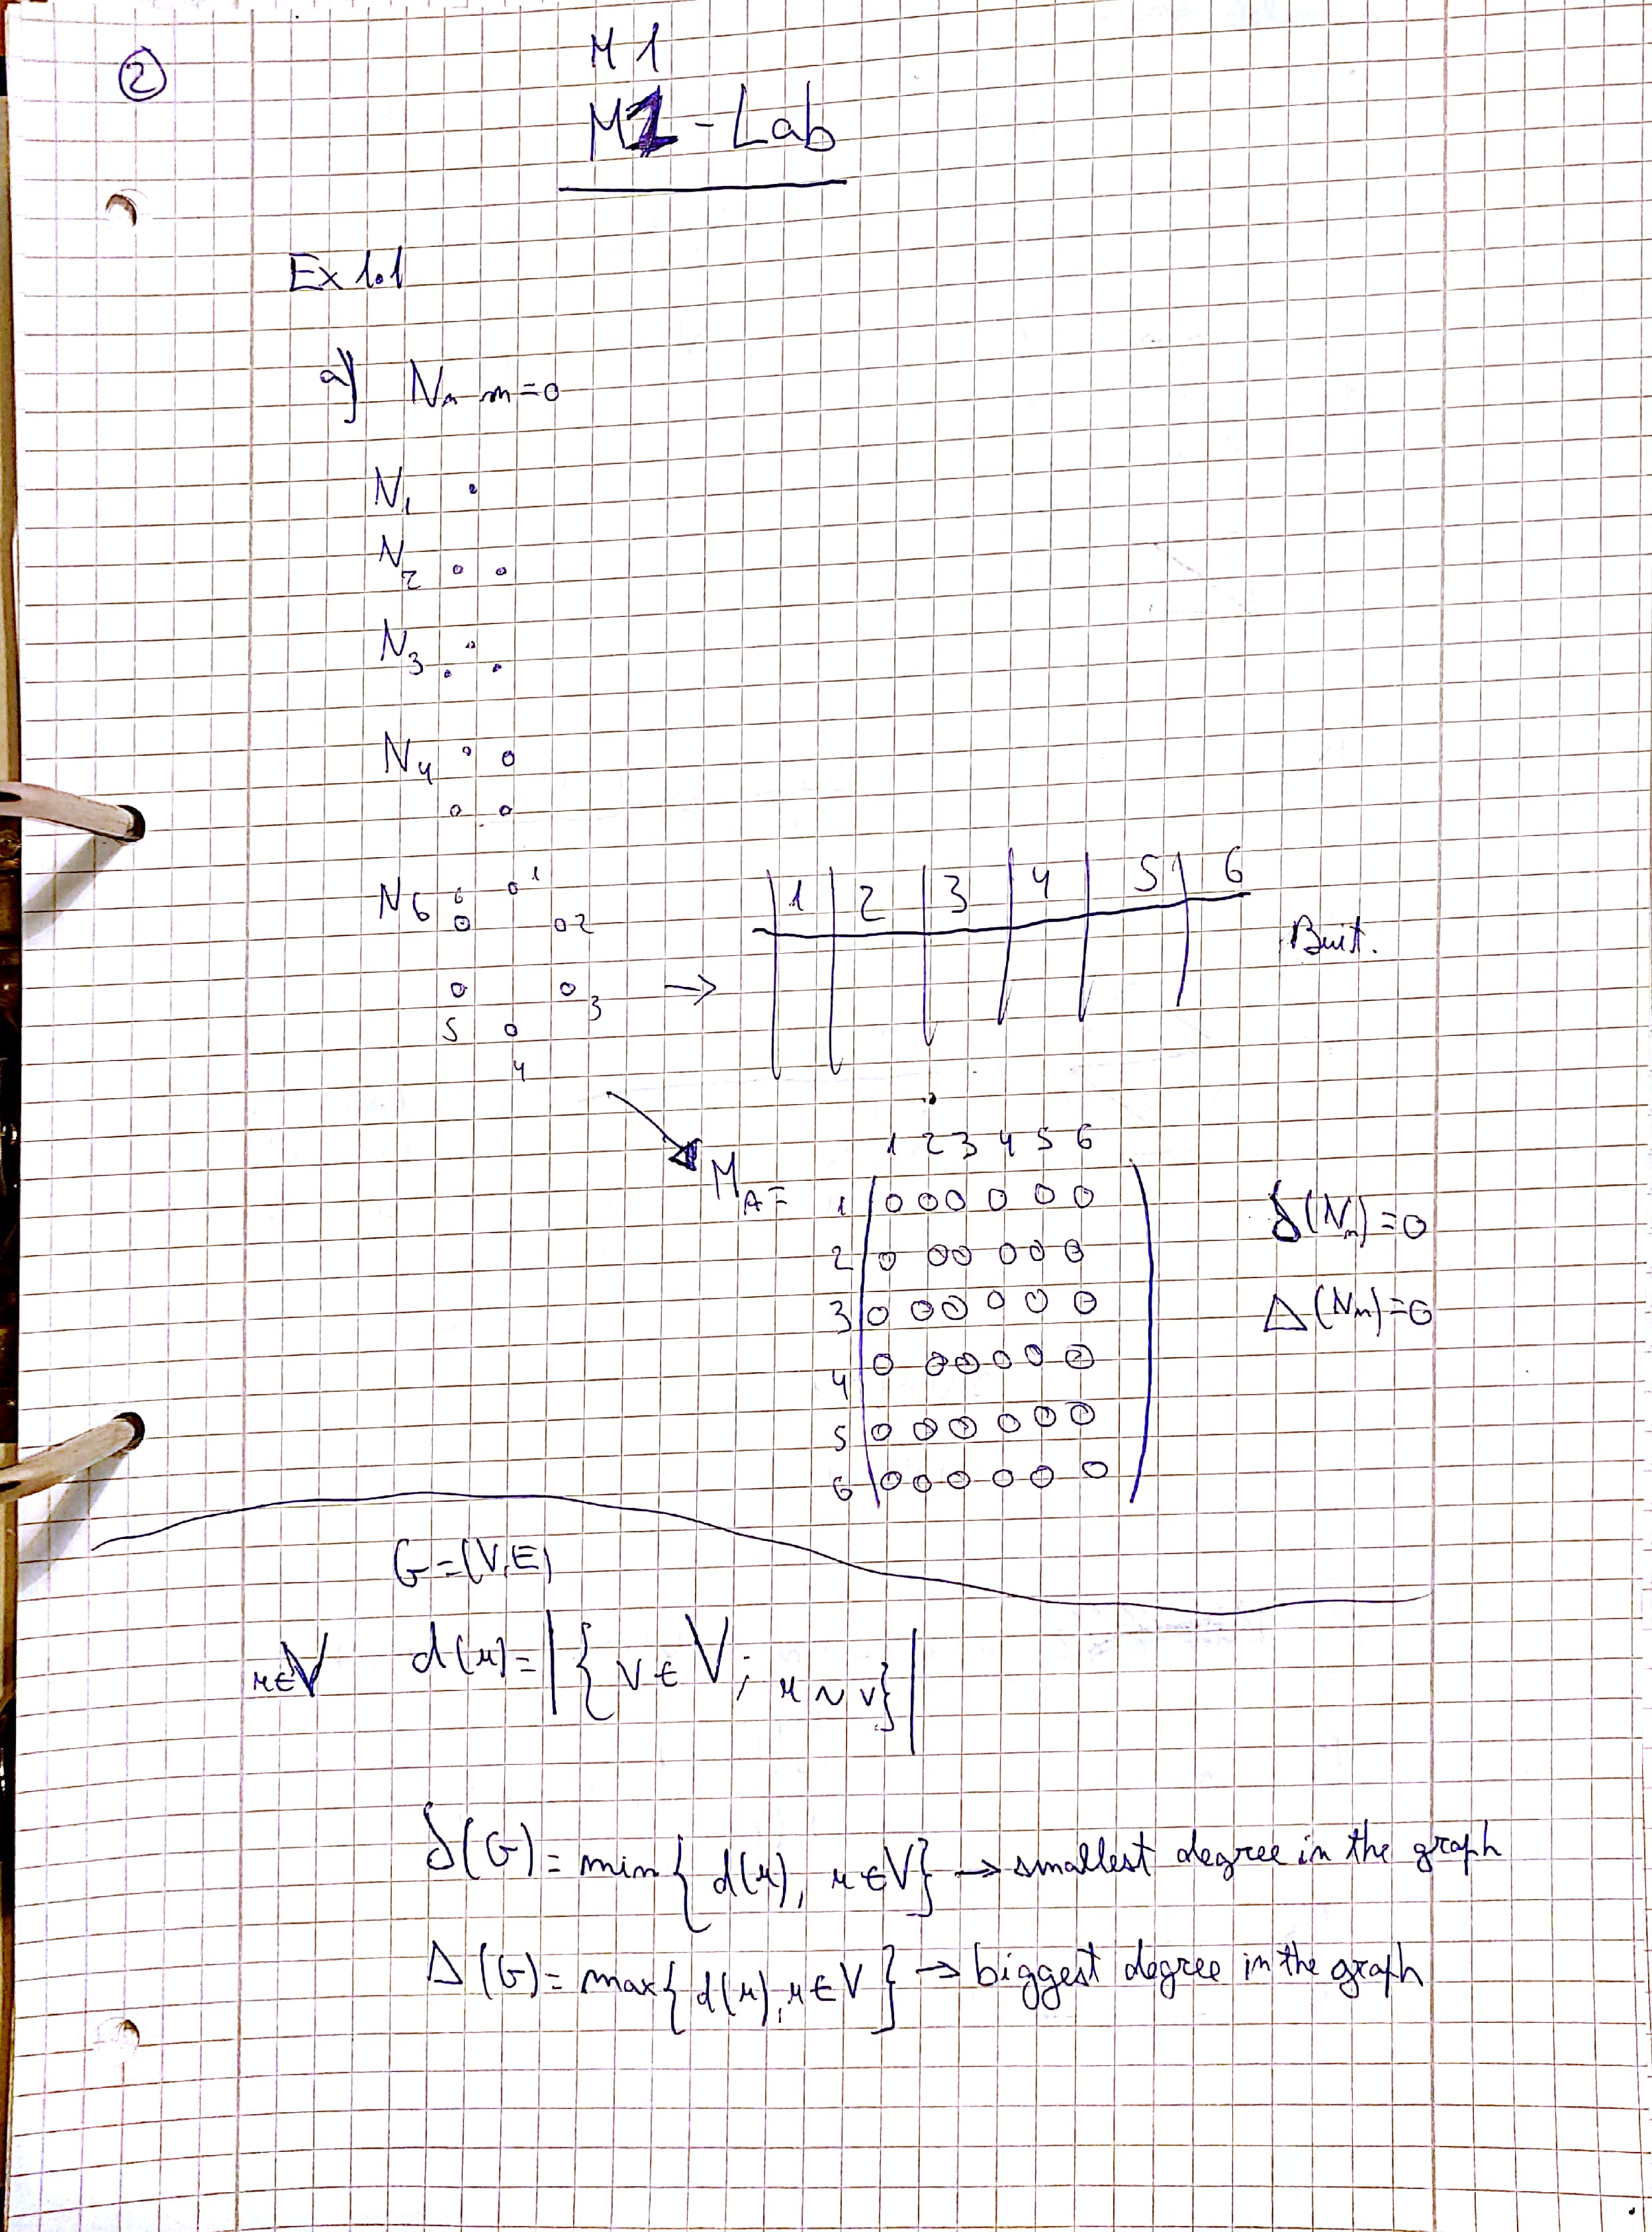 ②
M1
M1-Lab
Ex 1.1
a) Nn m=0
N1
N2
N3
N4
N6 6 1
2
3
5
4
→ 1 2 3 4 5 6
Buit.
1 2 3 4 5 6
MA =
1 0 0 0 0 0 0
2 0 0 0 0 0 0
3 0 0 0 0 0 0
4 0 0 0 0 0 0
5 0 0 0 0 0 0
6 0 0 0 0 0 0
δ(Nn)=0
Δ(Nn)=0
G=(V,E)
u∈V d(u)=|{v∈V; u~v}|
δ(G)=min{d(u), u∈V} → smallest degree in the graph
Δ(G)=max{d(u), u∈V} → biggest degree in the graph